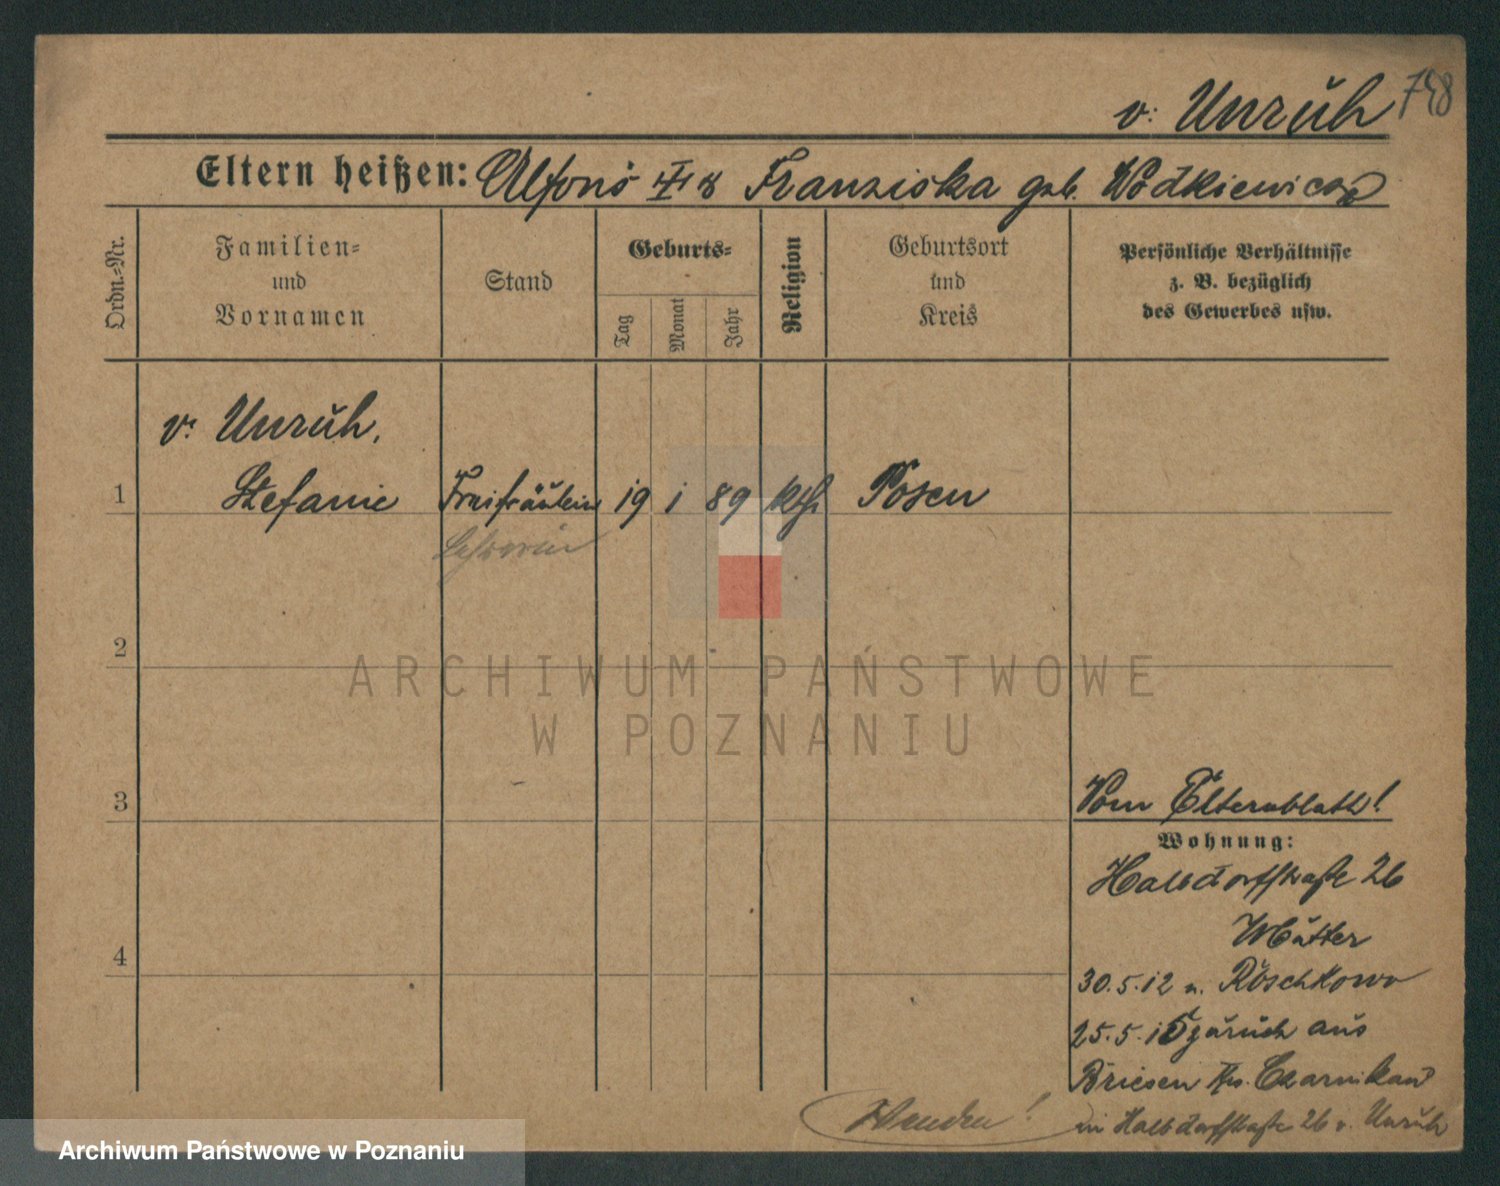 v. Unruh 748
Eltern heißen: Alfons u. Franziska geb. Wodkiewicz
Ordn.-Nr.
Familien-
und
Vornamen
Stand
Geburts-
Tag
Monat
Jahr
Religion
Geburtsort
und
Kreis
Persönliche Verhältnisse
z. B. bezüglich
des Gewerbes usw.
v. Unruh,
1 Stefanie Freifräulein 19 1 89 kth Posen
Lehrerin
2
ARCHIWUM PAŃSTWOWE
W POZNANIU
3
Vom Elternblatt!
Wohnung:
Halbdorfstraße 26
Mutter
4
30.5.12 n. Roschkowo
25.5.15 zurück aus
Briesen Krs. Czarnikau
in Halbdorfstraße 26 v. Unruh
Wenden!
Archiwum Państwowe w Poznaniu